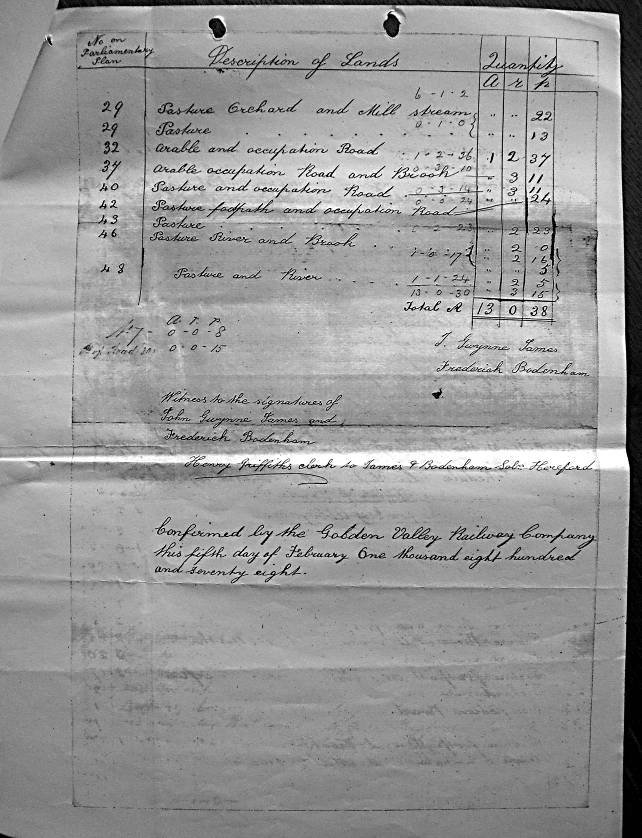 No on Parliamentary Plan Description of Lands Quantity
A r p
6 - 1 - 2
29 Pasture Orchard and Mill stream " " 22
0 - 1 - 0
29 Pasture " " 13
32 Arable and occupation Road 1 - 2 - 36 1 2 37
34 Arable occupation Road and Brook " 3 11
40 Pasture and occupation Road 0 - 3 - 14 " 3 11
42 Pasture footpath and occupation Road 0 - 0 - 24 " " 24
43 Pasture 2 - 23 " 2 23
46 Pasture River and Brook " 2 0
1 - 0 - 17 " 2 16
" " 3
48 Pasture and River 1 - 1 - 24 " 2 5
13 - 0 - 30 3 15
Total A 13 0 38
A. r. P.
47 - 0 - 0 - 8
of road 0 - 0 - 15
J. Gwynne James
Frederick Bodenham
Witness to the signatures of
John Gwynne James and
Frederick Bodenham
Henry Griffiths clerk to James & Bodenham Solrs Hereford
Confirmed by the Golden Valley Railway Company
this fifth day of February One thousand eight hundred
and seventy eight.